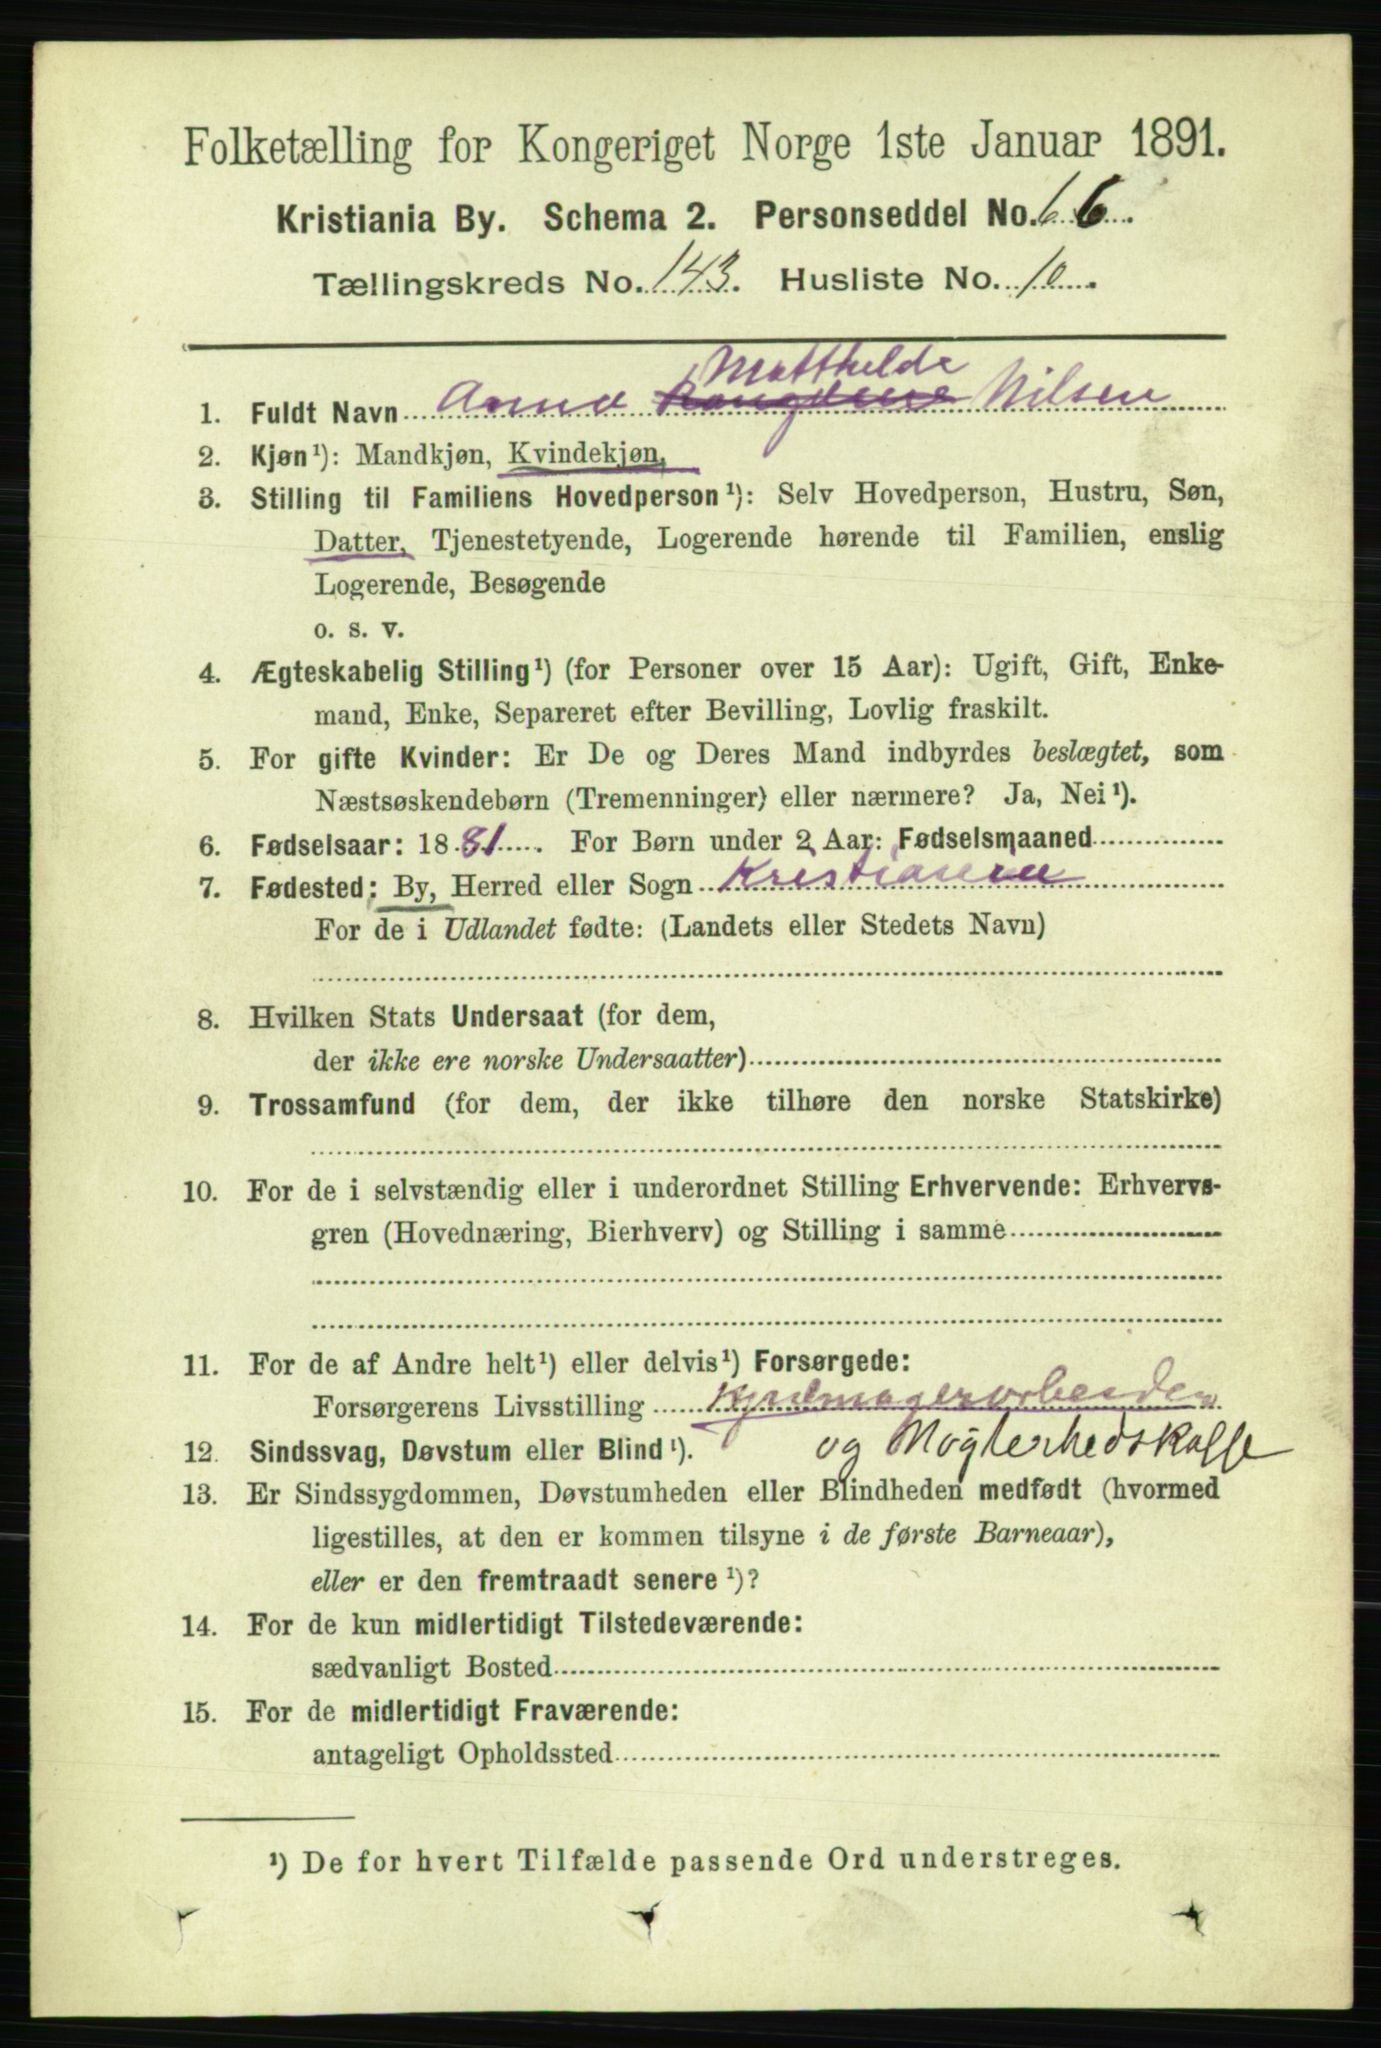 Folketælling for Kongeriget Norge 1ste Januar 1891.
Kristiania By. Schema 2. Personseddel No. 66.
Tællingskreds No. 143. Husliste No. 10.
Matthilde
1. Fuldt Navn Anna Nilsen
2. Kjøn¹): Mandkjøn, Kvindekjøn,
3. Stilling til Familiens Hovedperson¹): Selv Hovedperson, Hustru, Søn,
Datter, Tjenestetyende, Logerende hørende til Familien, enslig
Logerende, Besøgende
o. s. v.
4. Ægteskabelig Stilling¹) (for Personer over 15 Aar): Ugift, Gift, Enke-
mand, Enke, Separeret efter Bevilling, Lovlig fraskilt.
5. For gifte Kvinder: Er De og Deres Mand indbyrdes beslægtet, som
Næstsøskendebørn (Tremenninger) eller nærmere? Ja, Nei¹).
6. Fødselsaar: 1881. For Børn under 2 Aar: Fødselsmaaned
7. Fødested: By, Herred eller Sogn Kristiania
For de i Udlandet fødte: (Landets eller Stedets Navn)
8. Hvilken Stats Undersaat (for dem,
der ikke ere norske Undersaatter)
9. Trossamfund (for dem, der ikke tilhøre den norske Statskirke)
10. For de i selvstændig eller i underordnet Stilling Erhvervende: Erhvervs-
gren (Hovednæring, Bierhverv) og Stilling i samme
11. For de af Andre helt¹) eller delvis¹) Forsørgede:
Forsørgerens Livsstilling Hjulmagerarbeider
og Mogterhedskasse
12. Sindssvag, Døvstum eller Blind¹).
13. Er Sindssygdommen, Døvstumheden eller Blindheden medfødt (hvormed
ligestilles, at den er kommen tilsyne i de første Barneaar),
eller er den fremtraadt senere¹)?
14. For de kun midlertidigt Tilstedeværende:
sædvanligt Bosted
15. For de midlertidigt Fraværende:
antageligt Opholdssted
¹) De for hvert Tilfælde passende Ord understreges.